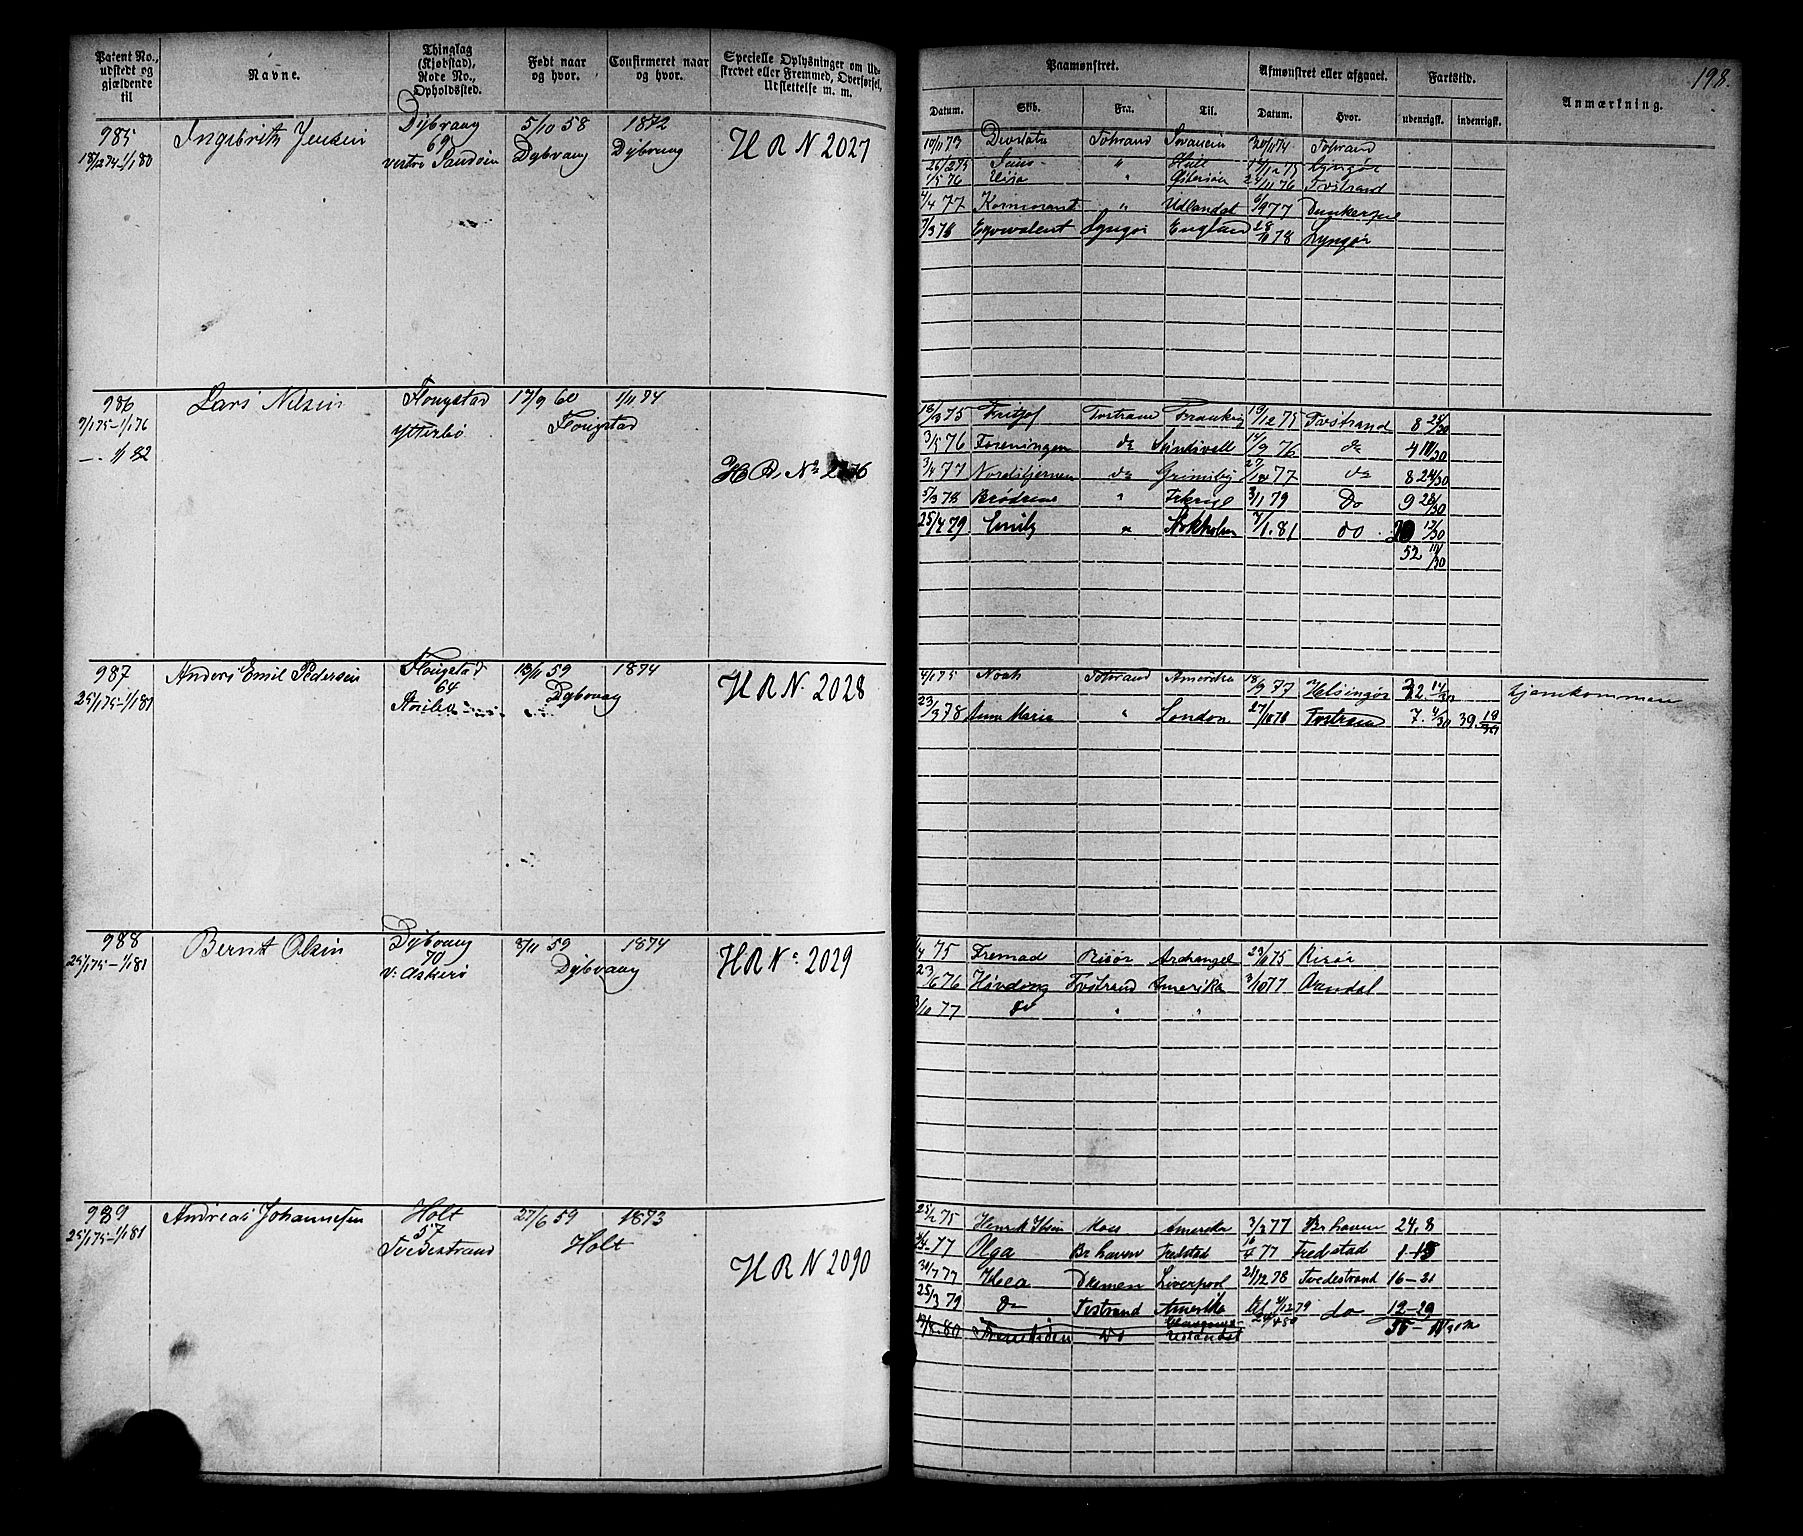 Patent No., udstedt og gjældende til
Navne.
Thinglag (Kjøbstad), Rode No., Opholdssted.
Født naar og hvor.
Confirmeret naar og hvor.
Specielle Oplysninger om Udskrevet eller Fremmed, Overførsel, Udslettelse m. m.
985
18/12 74-1/1 80
Ingebrith Jensen
Dybvaag
69
vestre Sandøen
5/10 58
Dybvaag
1872
Dybvaag
H R N 2027
986
9/1 75-1/1 76
-- 1/1 82
Lars Nilsen
Flougstad
Ytterbø
17/9 60
1/11 74
Flougstad
H R. No
987
25/1 75-1/1 81
Anders Emil Pedersen
Flougstad
64
13/11 59
1874
Dybvaag
H R N. 2028
988
25/1 75-1/1 81
Bernt Olsen
Dybvaag
70
v: Askerø
8/11 59
1874
Dybvaag
H R No 2029
989
25/1 75-1/1 81
Andreas Johannesen
Holt
57
Tvedestrand
27/6 59
1873
Holt
H R N 2090
198.
Paamønstret.
Afmønstret eller afgaaet.
Fartstid.
Anmærkning.
Datum. Skib. Fra. Til. Datum. Hvor. udenrigsk. indenrigsk.
10/11 73 Tvstrand 20/11 74 Tvstrand
26/2 75 " Hull Lyngør
1/5 76 " Østersøen 24/11 76 Tvstrand
4/4 77 Kormorant " Udlandet 6/9 77
7/3 78 Eqvivalent Lyngør England 28/10 78 Lyngør
18/3 75 Fritjof Tvstrand 19/12 75 Tvstrand 8
3/5 76 Foreningen do 14/9 76 do 4 11/30
3/4 77 Nordstjernen do Grimsby 27/12 77 do 8 24/30
5/3 78 Brødrene " 3/1 79 Do 9 28/30
25/4 79 Emily " Stokholm 7/1.81 do 17/30
52 11/30
4/1 75 Noah Tvstrand Amerika 18/9 77 Helsingør 32 14/30 hjemkommen
23/3 78 Anna Marie " London 27/10 78 Tvstrand 7. 4/30 39. 18/30
75 Fremad Risør Archangel 75 Risør
23/6 76 Høvding Tvstrand Amerika 3/10 77 Arendal
3/10 77 do " "
25/2 75 Henrik Ibsen Moss Amerika 3/3 77 Brhaven 24,8
77 Olga Brhaven Fredstad 10/4 77 Fredstad 1-15
30/7 77 Liverpool 21/12 78 Tvedestrand 16-21
25/3 79 Do Tvstrand Amerika 79 do 12-29
80 do Udlandet 24/4 80 55-11/30 m